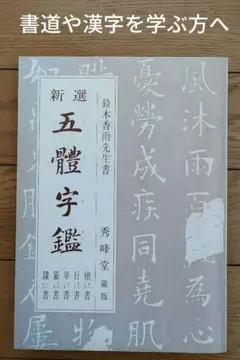 書道や漢字を学ぶ方へ
風沐雨百
為心
憂勞成疾同堯肌
鈴木香雨先生書
秀峰堂 藏版
新選
五體字鑑
楷に書
行に書
草に書
篆に書
隷に書